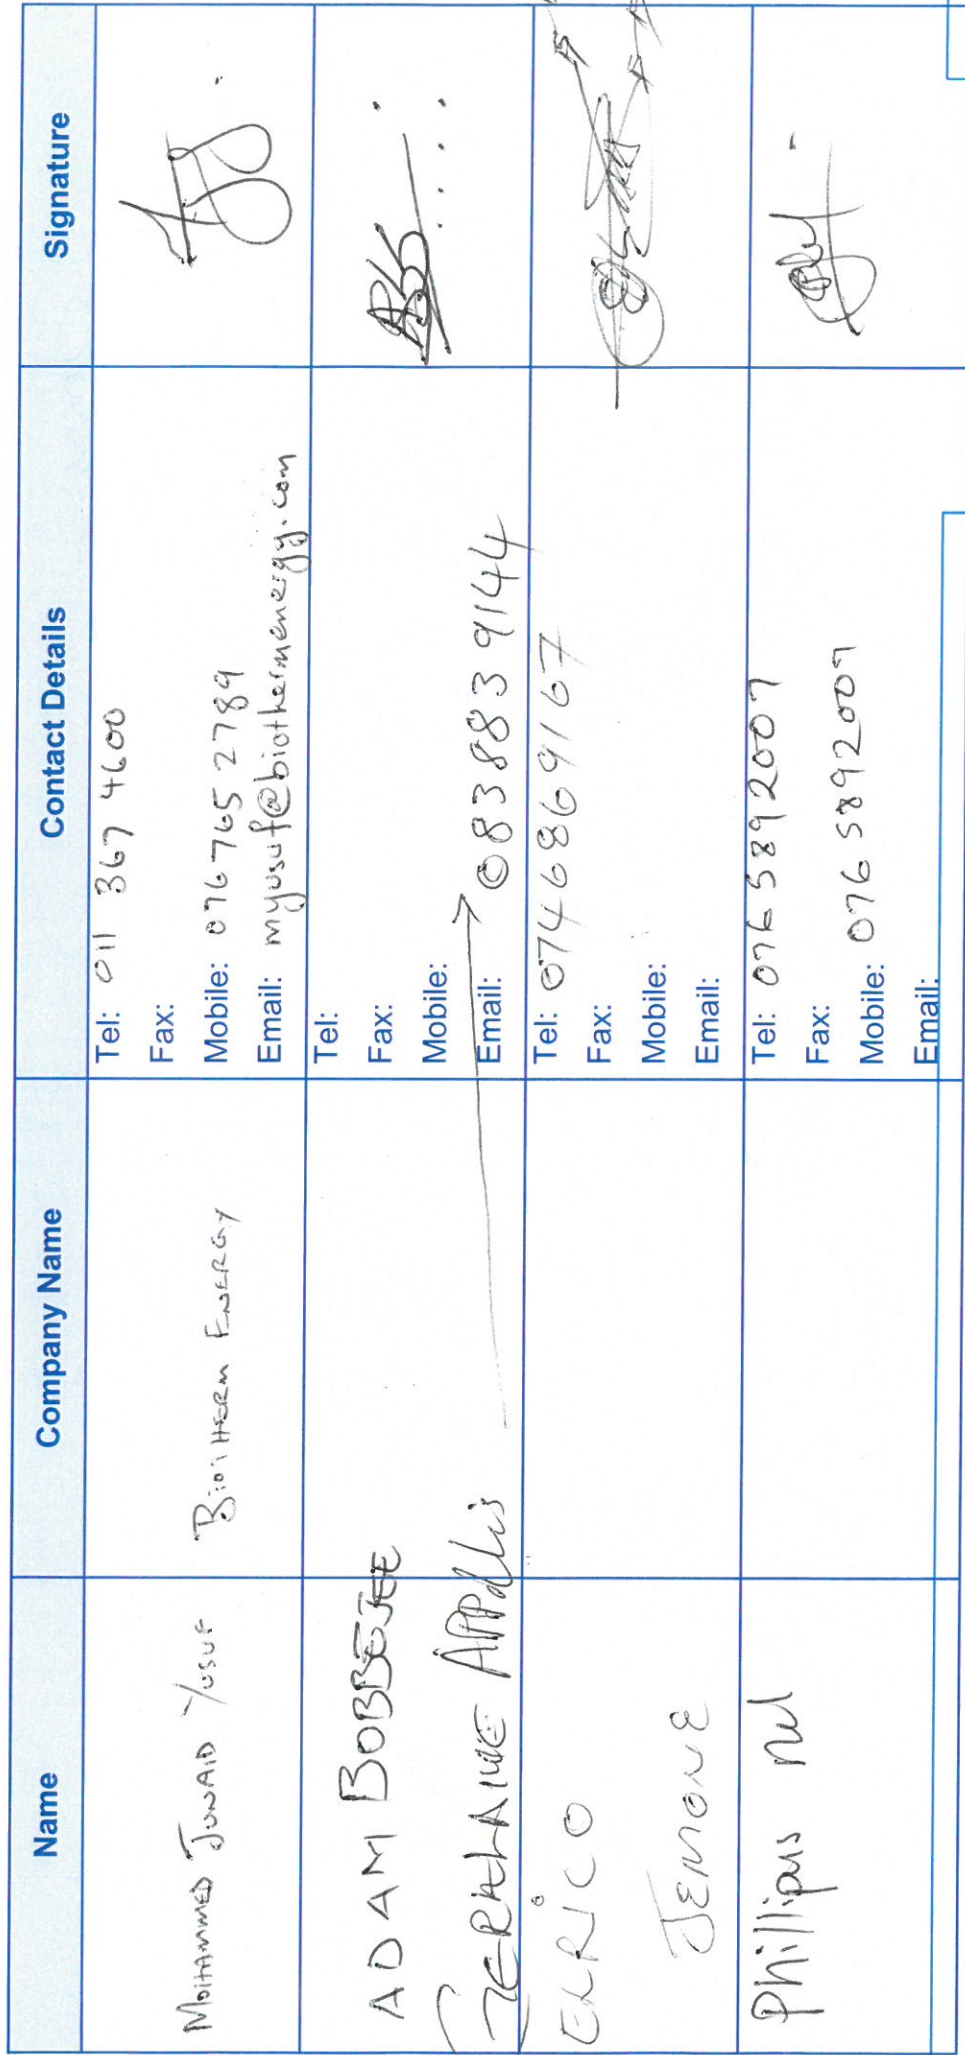 Name Company Name Contact Details Signature
Mohammed Junaid Yusuf
Biotherm Energy
Tel: 011 367 4600
Fax:
Mobile: 076765 2789
Email: myusuf@biothermenergy.com
ADAM BOBBEJEE
GERALAINE APPollis
Tel:
Fax:
Mobile:
Email: 0838839144
ELRICO
JEMONE
Tel: 0746869167
Fax:
Mobile:
Email:
Phillipus Nel
Tel: 0765892007
Fax:
Mobile: 0765892007
Email: